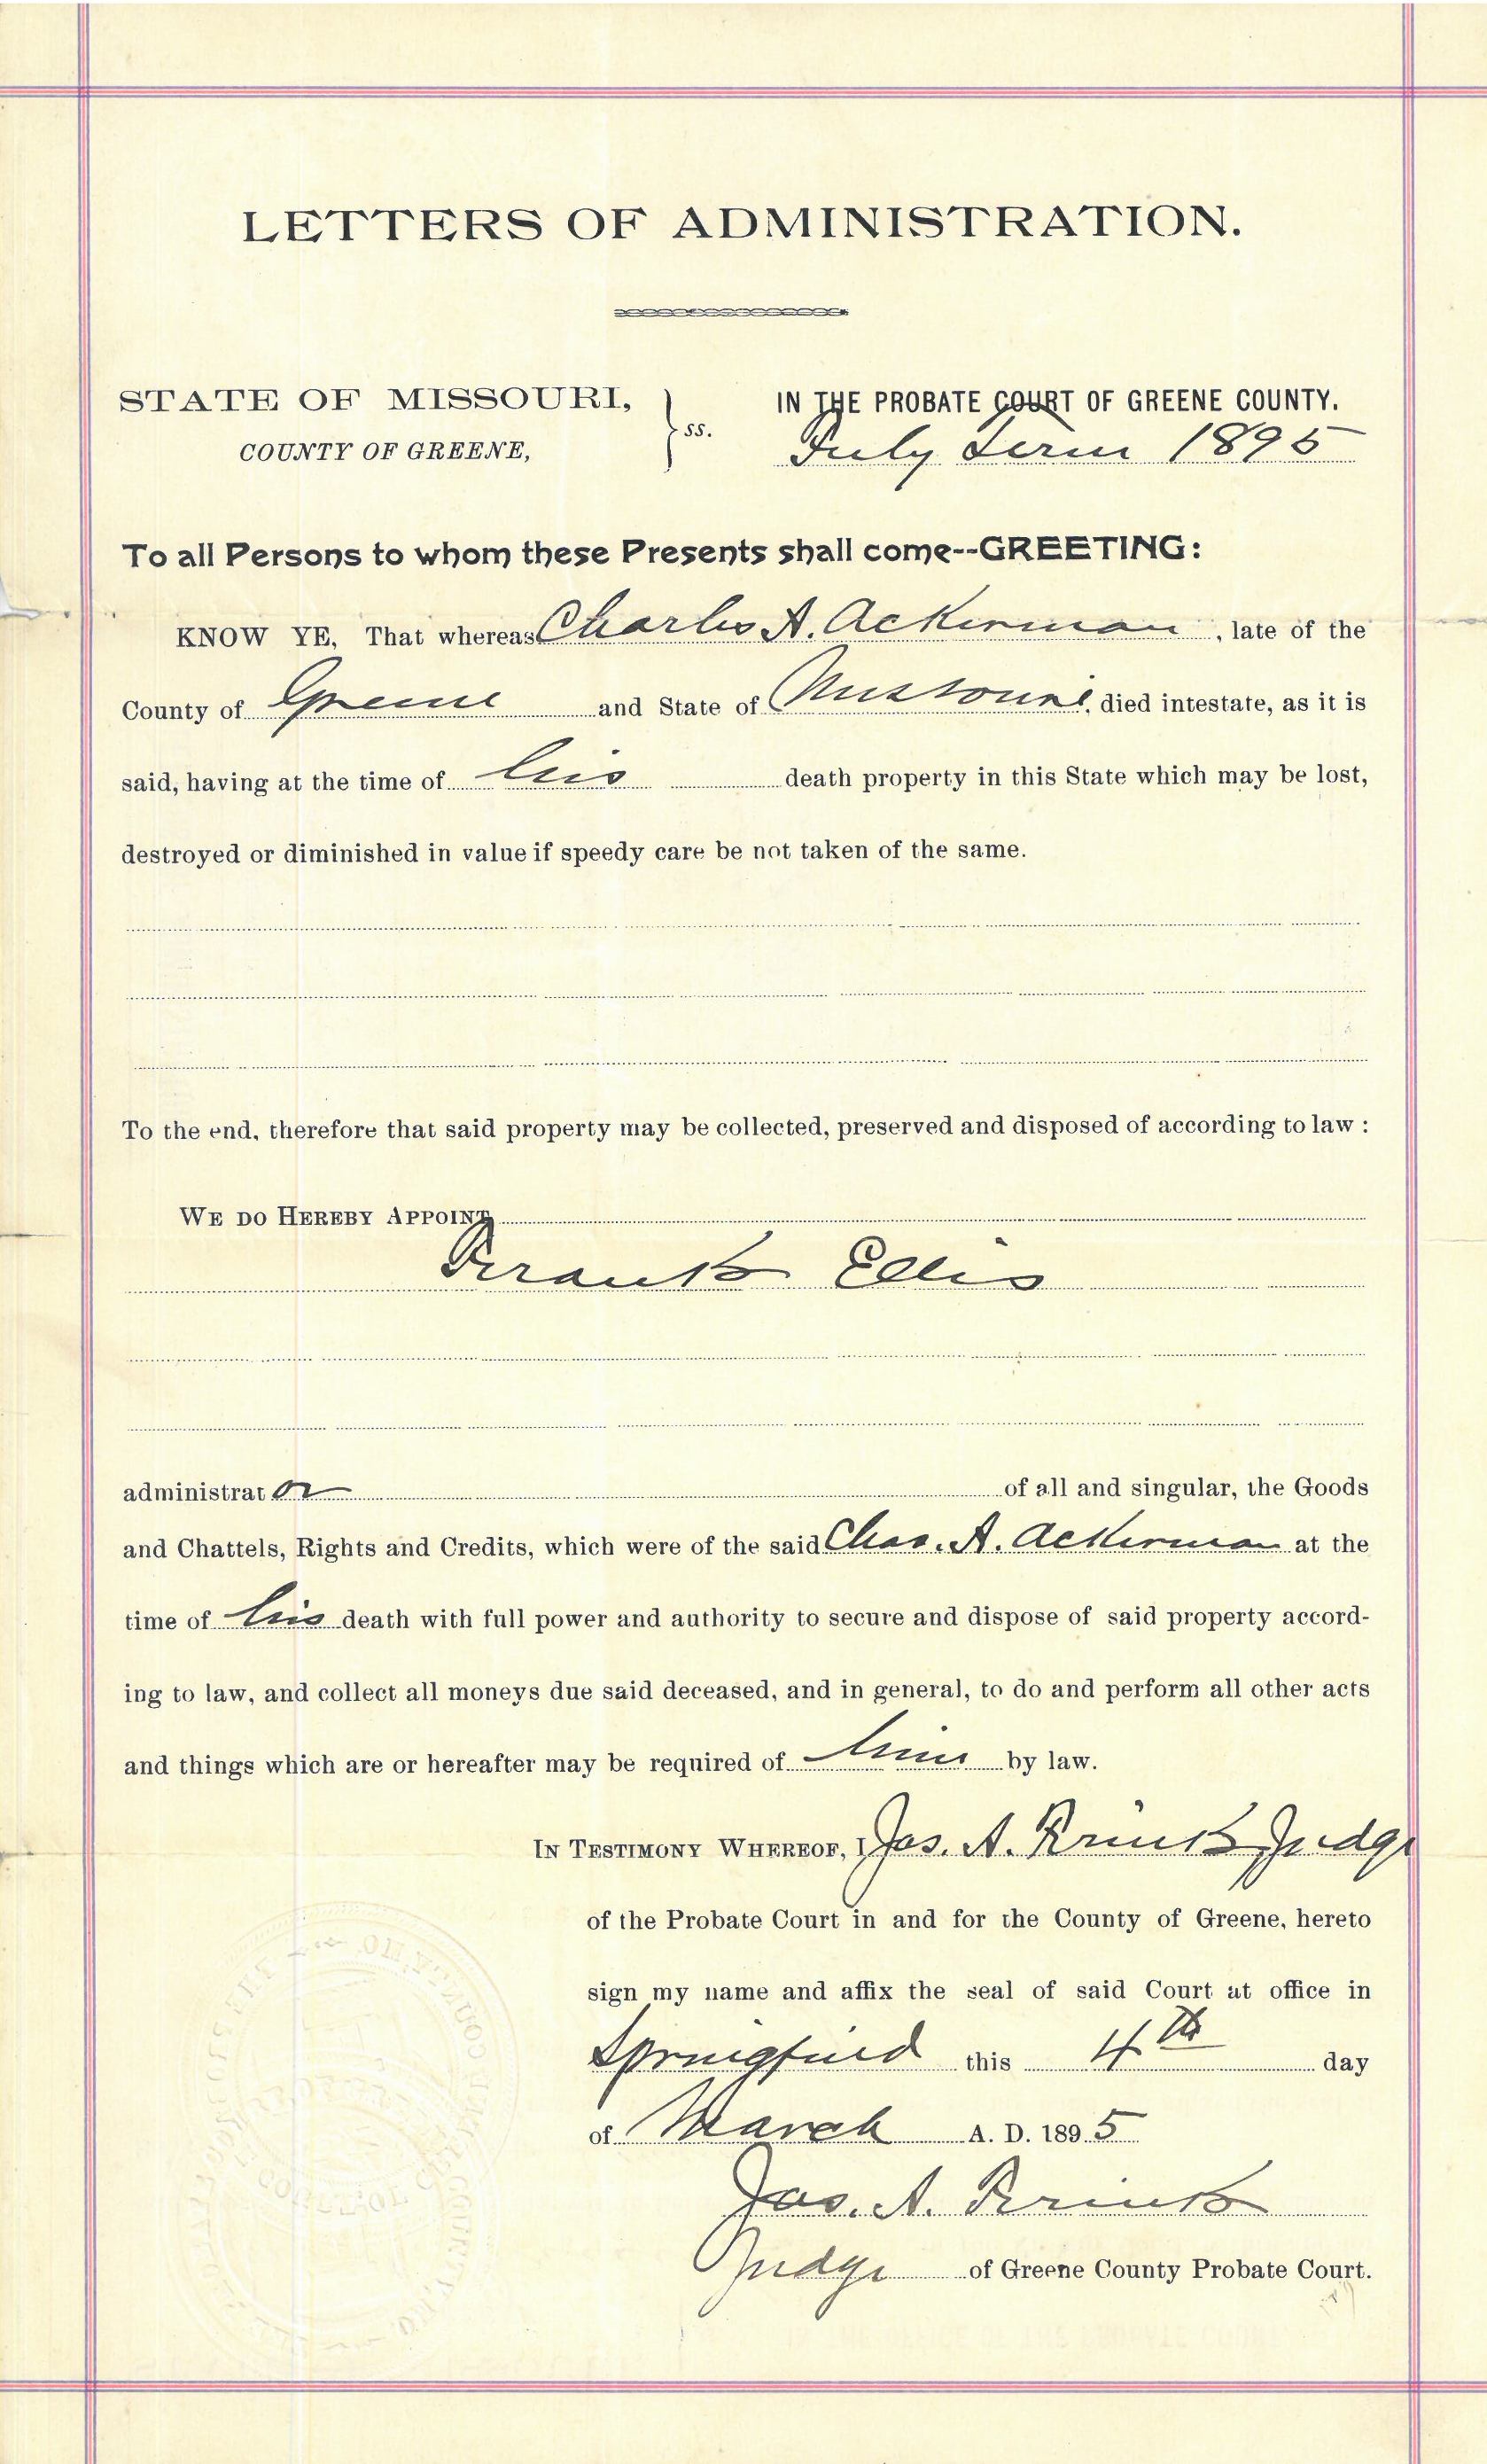 LETTERS OF ADMINISTRATION.
STATE OF MISSOURI,
COUNTY OF GREENE,
ss.
IN THE PROBATE COURT OF GREENE COUNTY.
July Term 1895
To all Persons to whom these Presents shall come--GREETING:
KNOW YE, That whereas Charles A. Ackerman, late of the
County of Greene and State of Missouri, died intestate, as it is
said, having at the time of his death property in this State which may be lost,
destroyed or diminished in value if speedy care be not taken of the same.
To the end, therefore that said property may be collected, preserved and disposed of according to law :
WE DO HEREBY APPOINT
Frank Ellis
administrator of all and singular, the Goods
and Chattels, Rights and Credits, which were of the said Chas. A. Ackerman at the
time of his death with full power and authority to secure and dispose of said property accord-
ing to law, and collect all moneys due said deceased, and in general, to do and perform all other acts
and things which are or hereafter may be required of him by law.
IN TESTIMONY WHEREOF, I Jas. A. Frink Judge
of the Probate Court in and for the County of Greene, hereto
sign my name and affix the seal of said Court at office in
Springfield this 4th day
of March A. D. 1895
Jas. A. Frink
Judge of Greene County Probate Court.